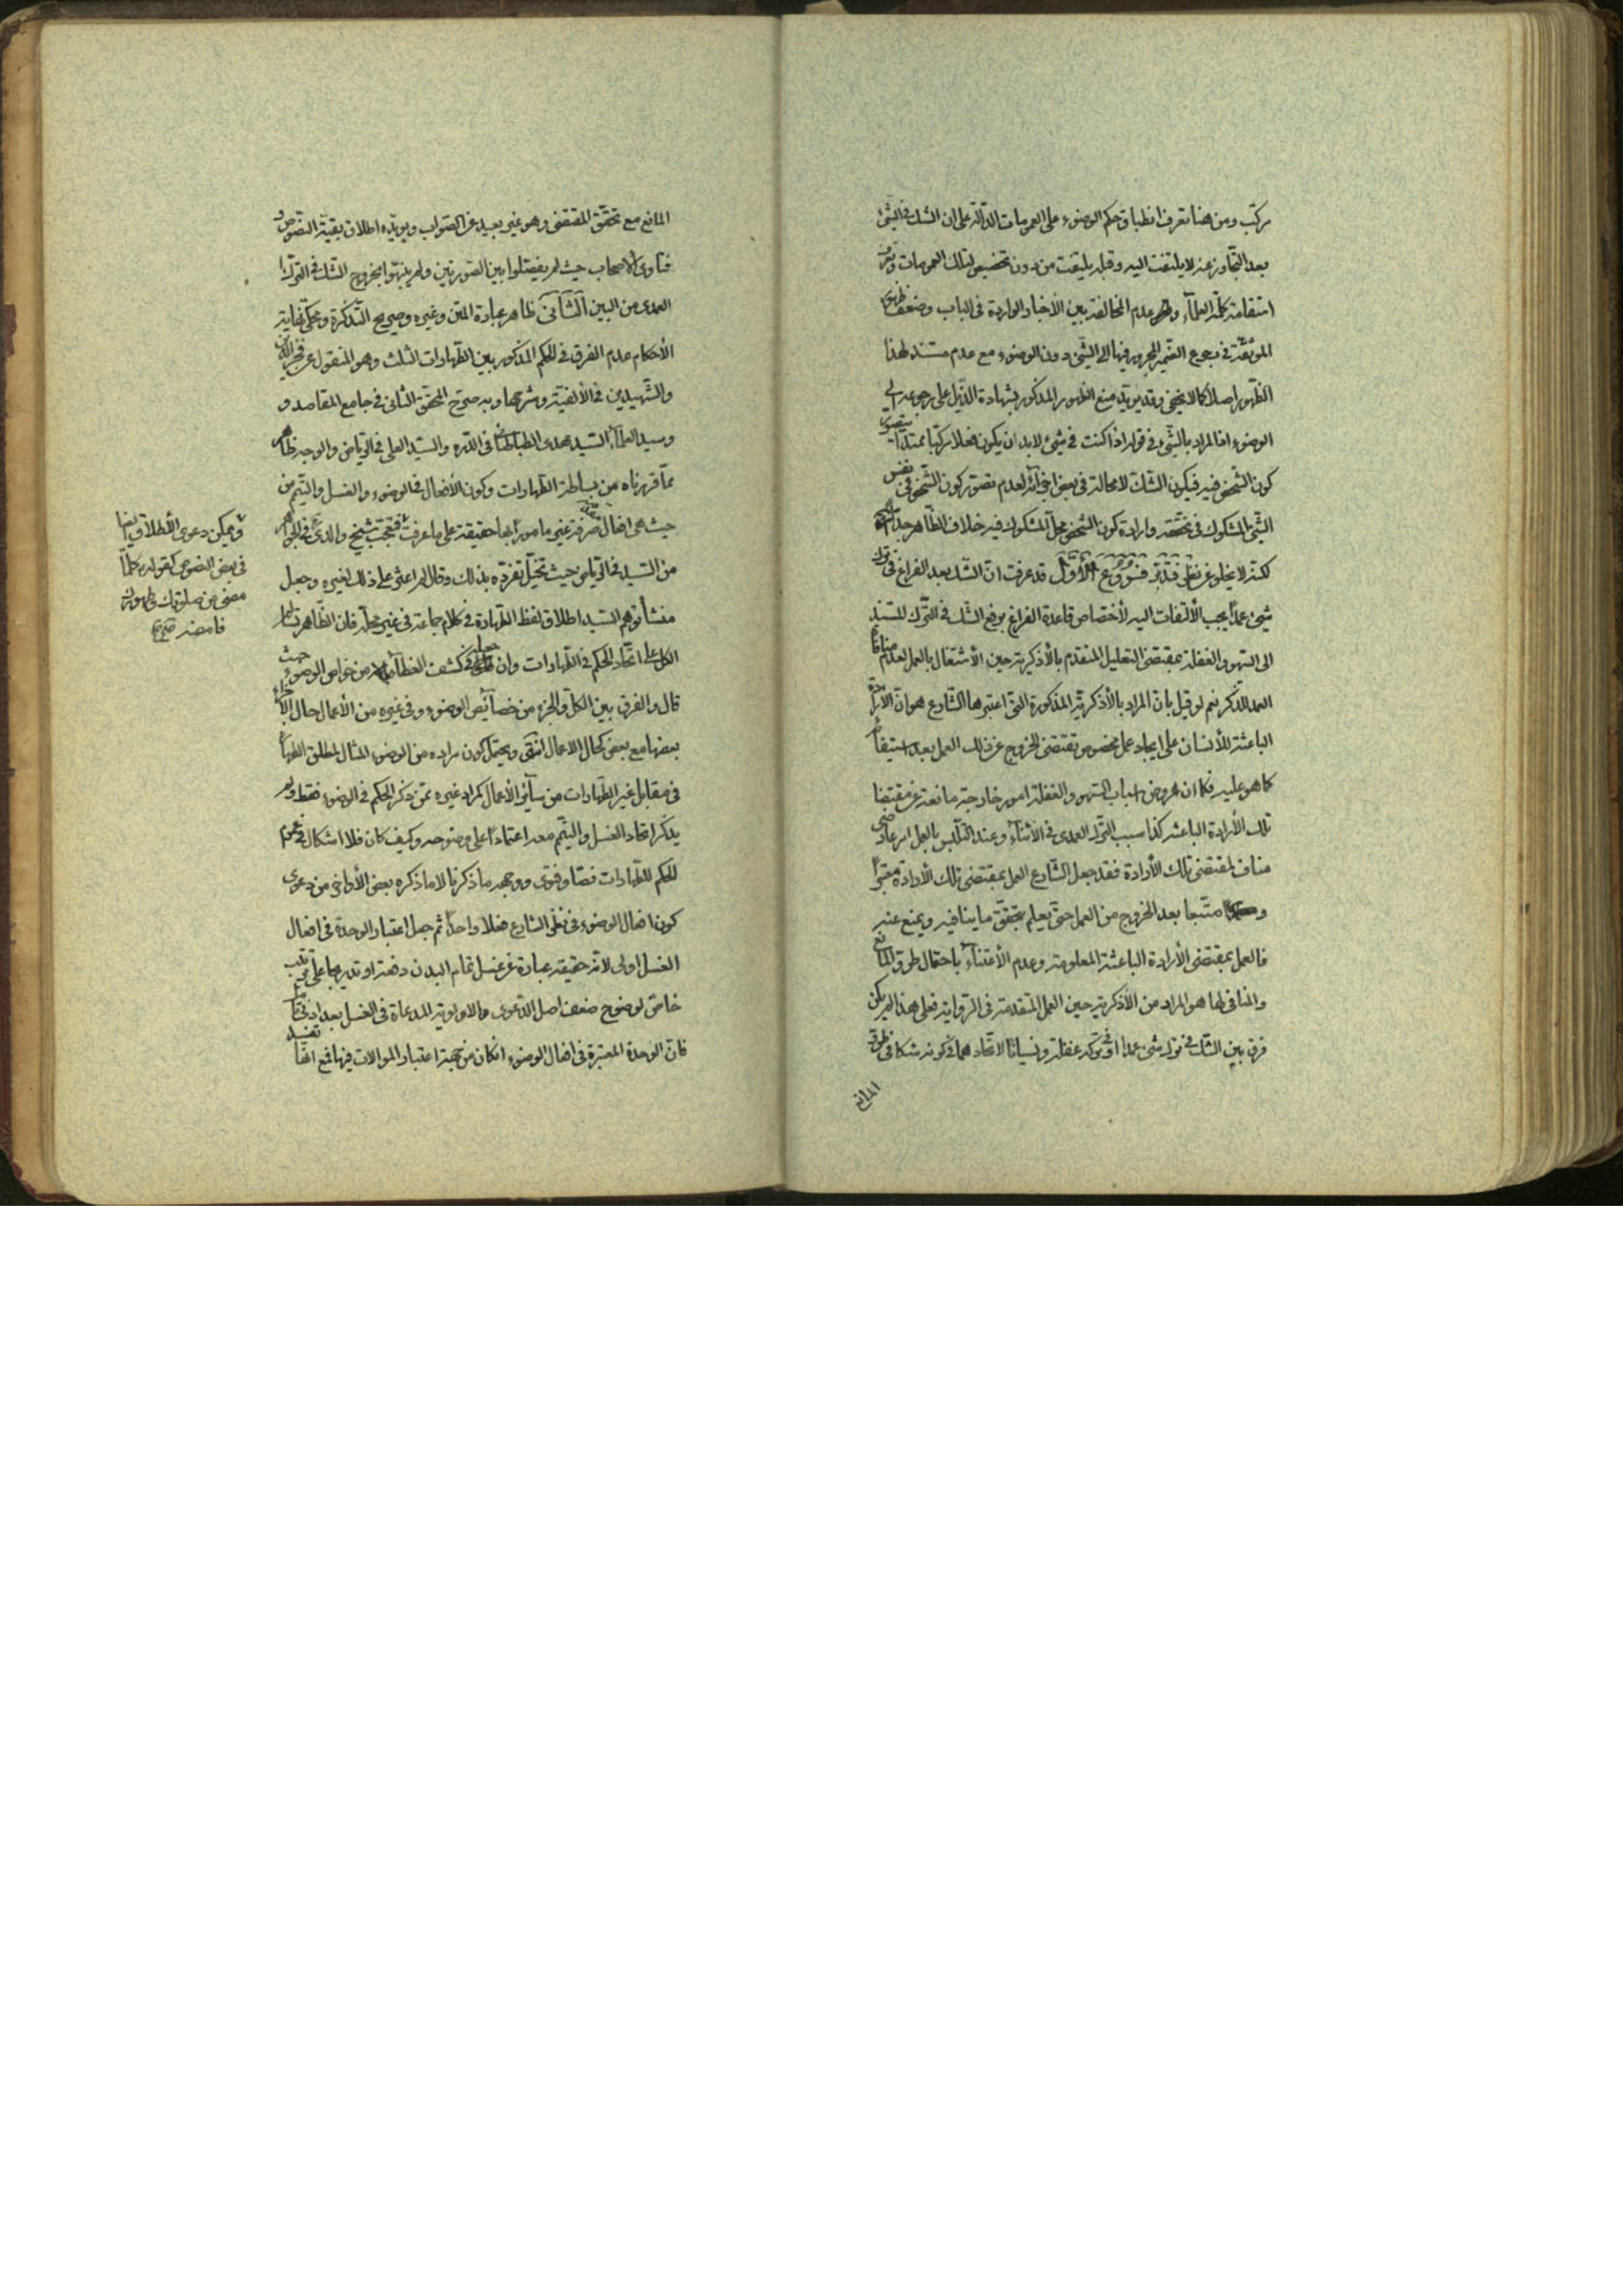 مركب ومن هنا تعرف انطباق حكم الوضوء على العمومات الدالة على ان الشك في الشئ
بعد التجاوز عنه لا يلتفت اليه وقبله يلتفت من دون تخصيص لتلك العمومات
استقامة كلمة العلماء وظهر عدم المخالفة بين الأخبار الواردة في الباب وضعف ظهور
الموثقة في رجوع الضمير المجرور فيها الى الشئ دون الوضوء مع عدم مستند لهذا
الظهور اصلا كما لا يخفى وقد يؤيد منع الظهور المذكور بشهادة الذيل على رجوعه الى
الوضوء اذ المراد بالشئ في قوله اذا كنت في شئ لابد ان يكون فعلا مركبا ممتدا يتصور
كون الشخص فيه فيكون الشك لا محالة في بعض اجزائه لعدم تصور كون الشخص في نفس
الشئ المشكوك في تحققه وارادة كون الشخص في محل المشكوك فيه خلاف الظاهر جدا
لكنه لا يخلو عن نظر فتدبر فروع الأول قد عرفت ان الشك بعد الفراغ في ترك
شئ عمدا يجب الألتفات اليه لأختصاص قاعدة الفراغ برفع الشك في الترك المستند
الى السهو والغفلة بمقتضى التعليل المتقدم بالأذكرية حين الأشتغال بالعمل لعدم منافاة
العمد للذكر نعم لو قيل بان المراد بالأذكرية المذكورة التي اعتبرها الشارع هو ان الأرادة
الباعثة للأنسان على ايجاد عمل مخصوص تقتضى الخروج عن ذلك العمل بعد استيفائه
كما هو عليه فكما ان عروض اسباب السهو والغفلة امور خارجة مانعة عن مقتضى
تلك الأرادة الباعثة كذا سبب الترك العمدى في الأثناء وعند التلبس بالعمل امر عارضى
مناف لمقتضى تلك الأرادة فقد جعل الشارع العمل بمقتضى تلك الأرادة معتبرا
متبعا بعد الخروج من العمل حتى يعلم بتحقق ما ينافيه ويمنع عنه
فالعمل بمقتضى الأرادة الباعثة المعلومة وعدم الأعتناء باحتمال طرو المانع
والمنافى لها هو المراد من الأذكرية حين العمل المتقدمة في الرواية فعلى هذا لم يكن
فرق بين الشك في ترك شئ عمدا او في تركه غفلة ونسيانا لاتحادهما في كونه شكا في طرو
المانع
المانع مع تحقق المقتضى وهو غير بعيد عن الصواب ويؤيده اطلاق بقية النصوص و
فتاوى الاصحاب حيث لم يفصلوا بين الصورتين ولم ينبهوا بخروج الشك في الترك
العمدى من البين الثانى ظاهر عبارة المتن وغيره وصريح التذكرة ومحكى نهاية
الأحكام عدم الفرق في الحكم المذكور بين الطهارات الثلث وهو المنقول عن فخر الدين
والشهيدين في الألفية وشرحها وبه صرح المحقق الثانى في جامع المقاصد و
وسيد العلماء السيد مهدى الطباطبائى في الدرة والسيد العلى في الرياض والوجه ظاهر
مما قررناه من بساطة الطهارات وكون الأفعال في الوضوء والغسل والتيمم من
حيث هى افعال صرفة غير مامور بها حقيقة على ما عرفت فتعجب شيخ والدى في الجواهر
من السيد في الرياض حيث تخيل تفرده بذلك وقال لم اعثر على ذلك لغيره وجعل
منشأ توهم السيد اطلاق لفظ الطهارة في كلام جماعة في غير محله فان الظاهر بناء
الكل على اتحاد الحكم في الطهارات وان جعله في كشف الغطاء من خواص الوضوء حيث
قال والفرق بين الكل والجزء من خصائص الوضوء وفى غيره من الأعمال حال الأجزاء
بعضها مع بعض كحال الاعمال انتهى ويحتمل كون مراده من الوضوء المثال لمطلق الطهارة
في مقابل غير الطهارات من سائر الأعمال كمراد غيره ممن ذكر الحكم في الوضوء فقط ولم
يذكر اتحاد الغسل والتيمم معه اعتمادا على وضوحه وكيف كان فلا اشكال في عموم
الحكم للطهارات نصا وفتوى ووجهه ما ذكرنا لا ما ذكره بعض الأواخر من دعوى
كون افعال الوضوء في نظر الشارع فعلا واحدا ثم جعل اعتبار الوحدة في افعال
الغسل اولى لانه حقيقة عبارة عن غسل تمام البدن دفعة او تدريجا على ترتيب
خاص لوضوح ضعف اصل الدعوى والاولوية المدعاة في الغسل بعد ادنى تأمل
فان الوحدة المعتبرة في افعال الوضوء ان كان من جهة اعتبار الموالات فيها فمع انها تفيد
ويمكن دعوى الأطلاق ايضا
في بعض النصوص كقوله كلما
مضى من صلوتك وطهورك
فامضه صح صح